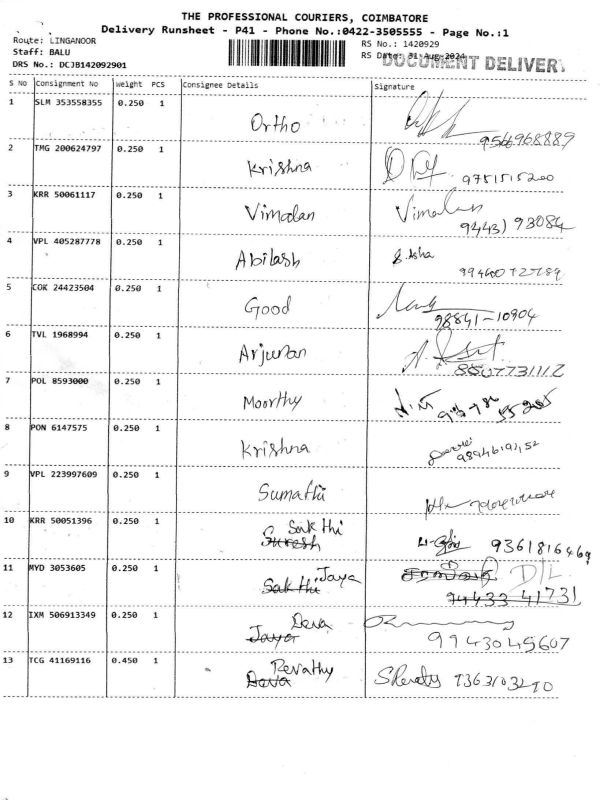 THE PROFESSIONAL COURIERS, COIMBATORE
Delivery Runsheet - P41 - Phone No.:0422-3505555 - Page No.:1
Route: LINGANOOR RS No.: 1420929
Staff: BALU RS Date: 31-Aug-2024 DOCUMENT DELIVERY
DRS No.: DCJB142092901
S No Consignment No Weight PCS Consignee Details Signature
1 SLM 353558355 0.250 1 Ortho
2 TMG 200624797 0.250 1 Krishna 9751515200
3 KRR 50061117 0.250 1 Vimalan Vimalan 94431 93084
4 VPL 405287778 0.250 1 Abilash S. Asha
5 COK 24423504 0.250 1 Good 98841-10904
6 TVL 1968994 0.250 1 Arjunan
7 POL 8593000 0.250 1 Moorthy
8 PON 6147575 0.250 1 Krishna
9 VPL 223997609 0.250 1 Sumathi
10 KRR 50051396 0.250 1 Suresh Sakthi 9361816469
11 MYD 3053605 0.250 1 Sakthi Jaya D/L 94433 41731
12 IXM 506913349 0.250 1 Jaya Deva 9943045607
13 TCG 41169116 0.450 1 Deva Revathy